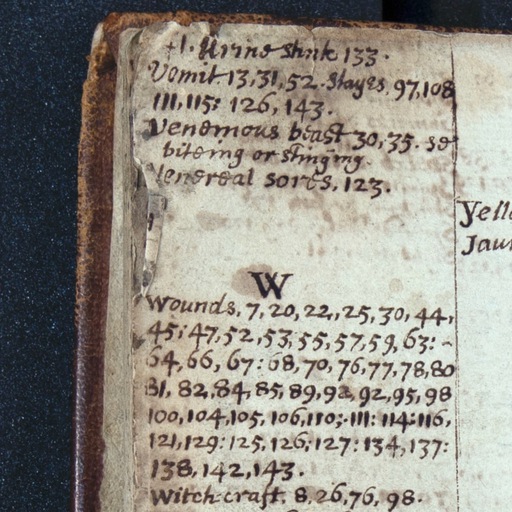 +1. Urine stink 133.
Vomit. 13, 31, 52. Stayes, 97, 108
111, 115: 126, 143.
Venemous beast 30, 35. se
biteing or stinging.
Venereal sores. 123.
Yell
Jau
W
Wounds, 7, 20, 22, 25, 30, 44,
45; 47, 52, 53, 55, 57, 59, 63: -
64, 66, 67: 68, 70, 76, 77, 78, 80
81, 82, 84, 85, 89, 92, 92, 95, 98
100, 104, 105, 106, 110; 111: 114: 116,
121, 129: 125, 126; 127: 134, 137:
138, 142, 143.
Witch-craft. 8, 26, 76, 98.